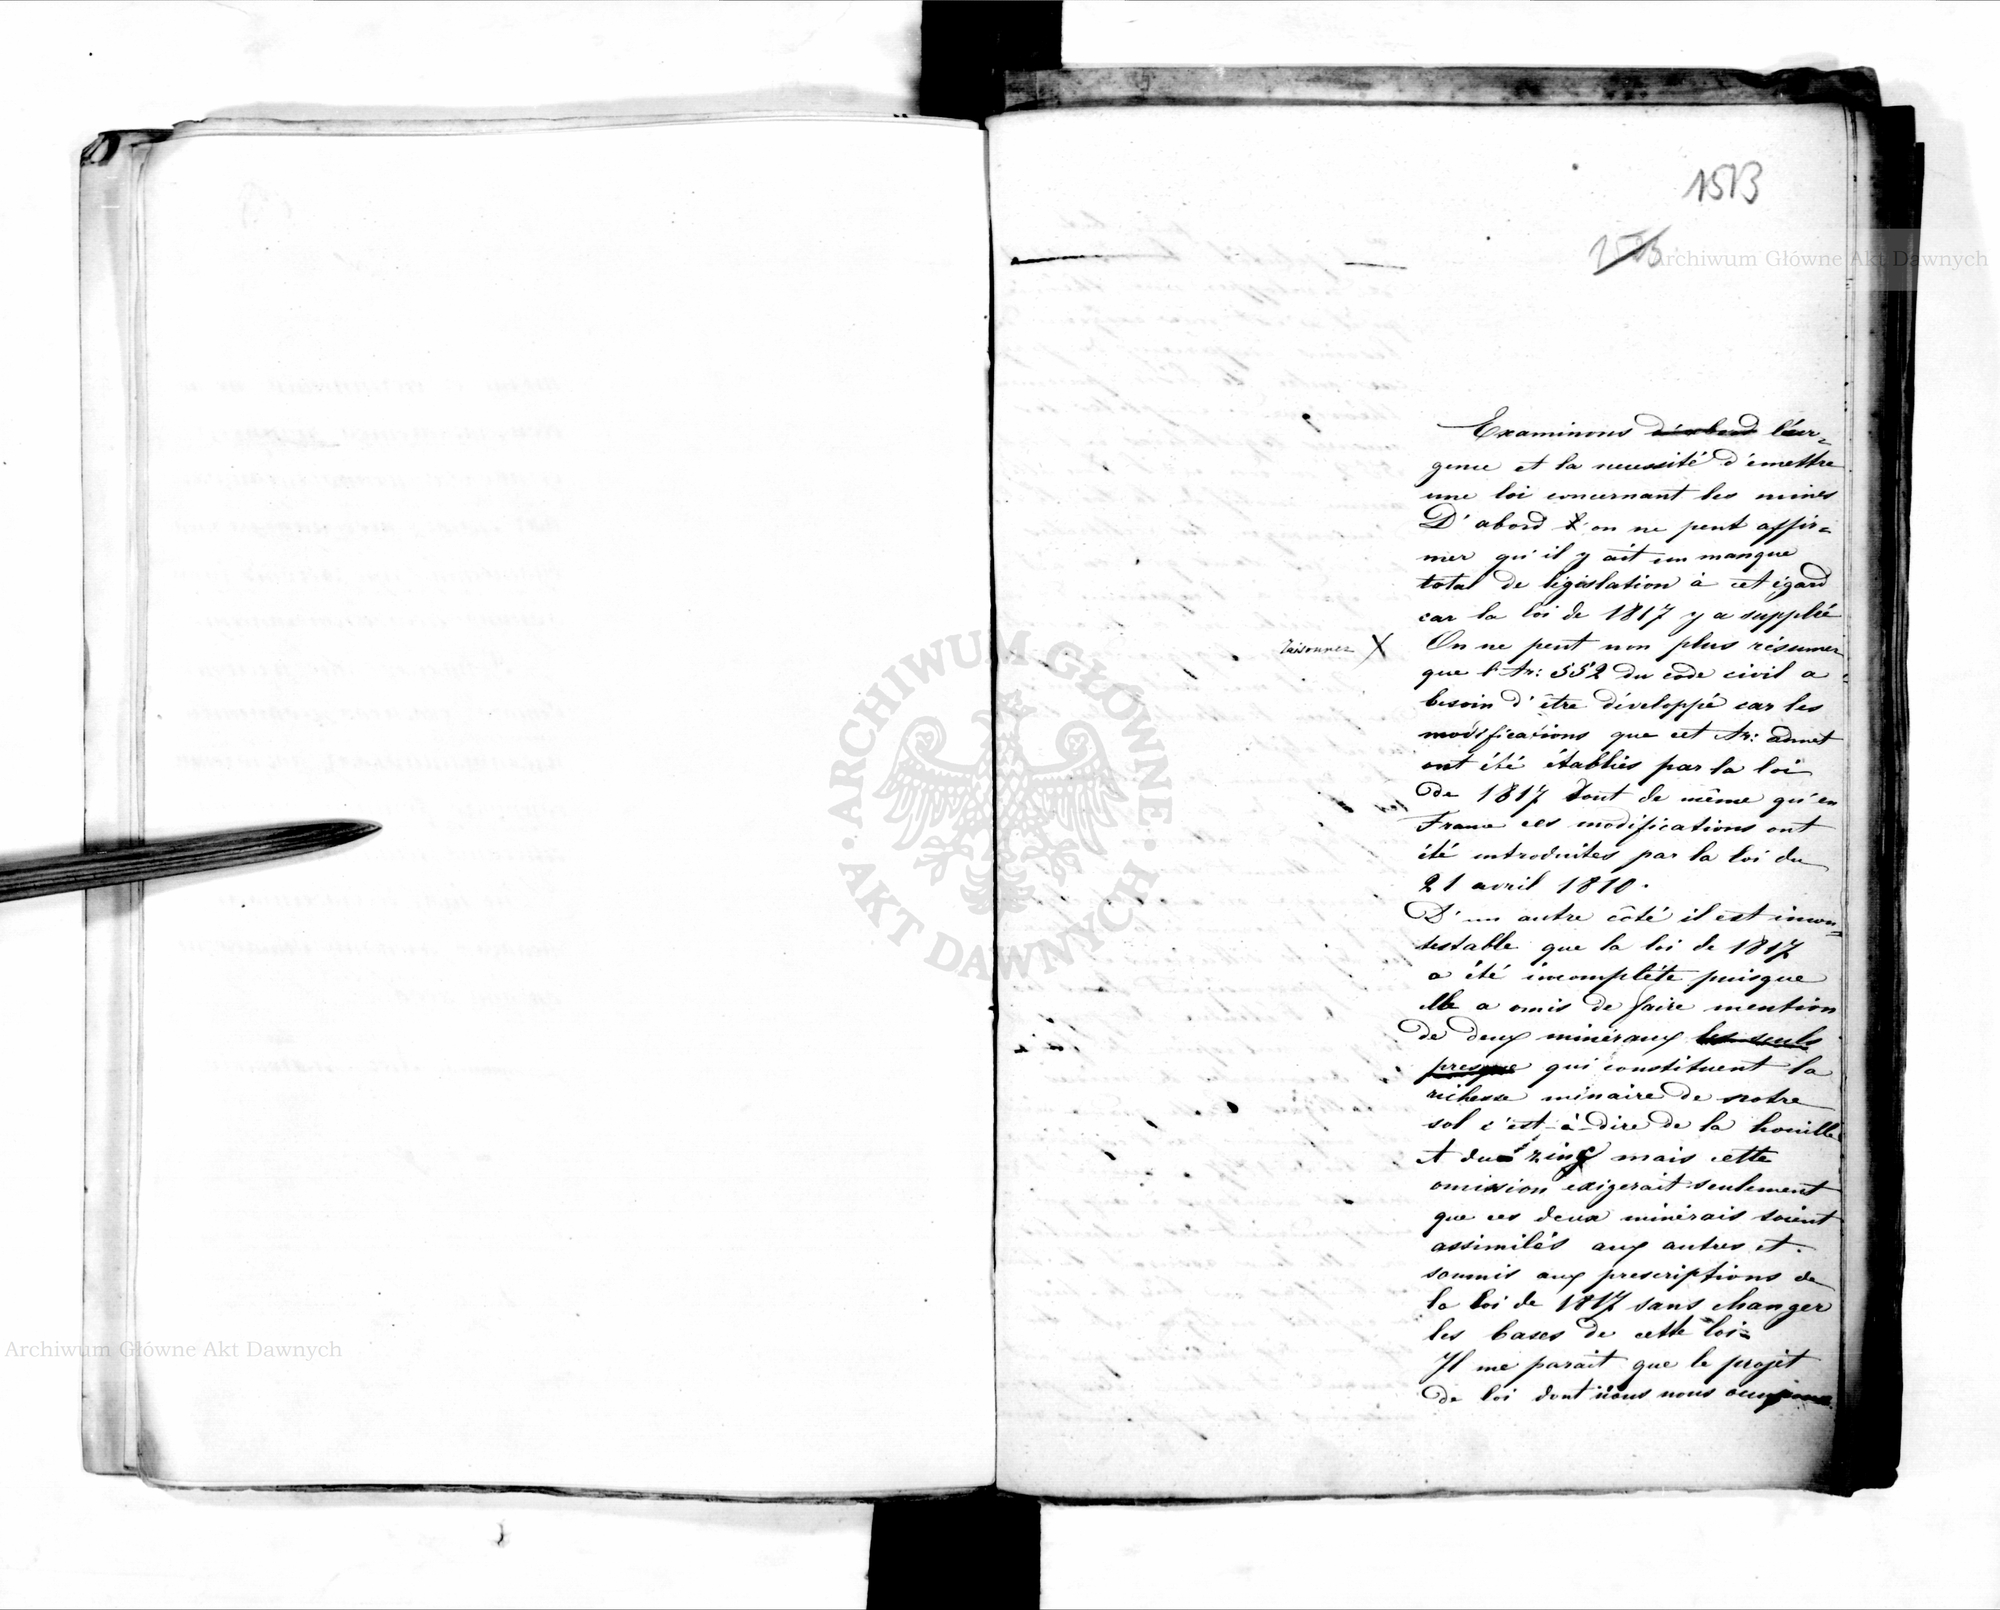 1513
Archiwum Główne Akt Dawnych
Examinons d'abord l'ur-
gence et la necessité d'emettre
une loi concernant les mines
D'abord l'on ne peut affir=
mer qu'il y ait un manque
total de législation à cet égard
car la loi de 1817 y a supplée
raisonner X
On ne peut non plus résumer
que l'Ar: 552 du code civil a
besoin d'être développé car les
modifications que cet Ar: admet
ont été établies par la loi
de 1817 tout de même qu'en
France ces modifications ont
été introduites par la loi du
21 avril 1810.
D'un autre côté il est incon=
testable que la loi de 1817
a été incomplète puisque
elle a omis de faire mention
de deux minéraux les seuls
presque qui constituent la
richesse minaire de notre
sol c'est-à-dire de la houille
et du zinc mais cette
omission exigerait seulement
que ces deux minérais soient
assimilés aux autres et
soumis aux prescriptions de
la loi de 1817 sans changer
les bases de cette loi=
Il me parait que le projet
de loi dont nous nous occupons
ARCHIWUM GŁÓWNE · AKT DAWNYCH ·
Archiwum Główne Akt Dawnych